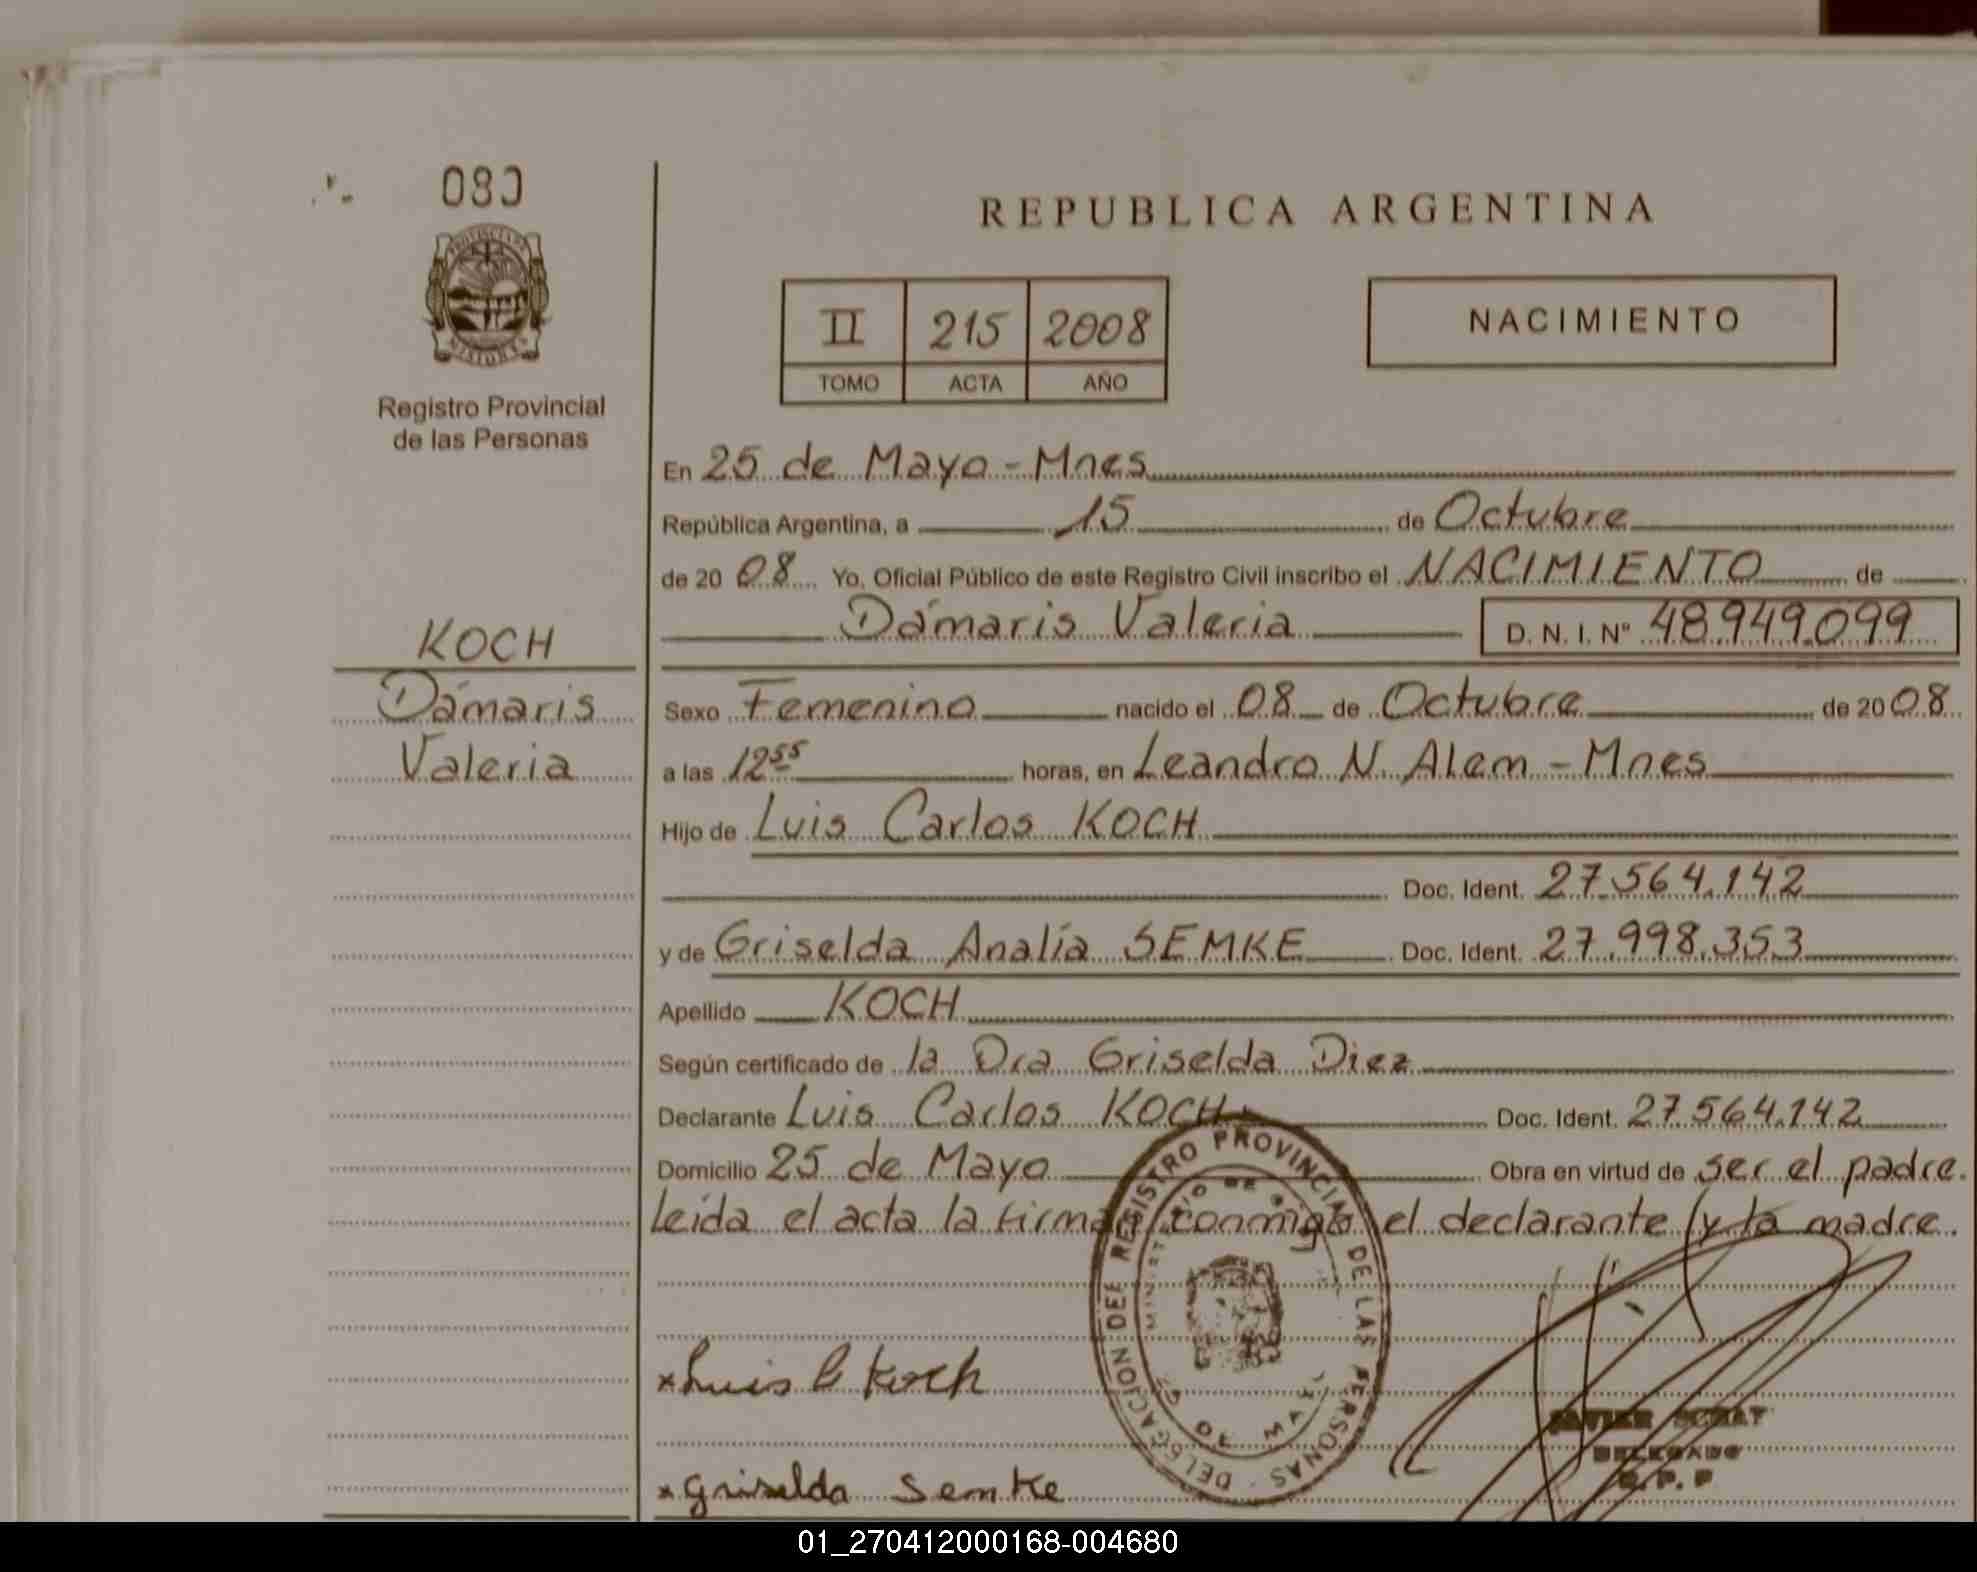 080
PROVINCIA DE
MISIONES
Registro Provincial
de las Personas
KOCH
Dámaris
Valeria
REPUBLICA ARGENTINA
II 215 2008
TOMO ACTA AÑO
NACIMIENTO
En 25 de Mayo - Mnes
República Argentina, a 15 de Octubre
de 20 08 Yo, Oficial Público de este Registro Civil inscribo el NACIMIENTO de
Dámaris Valeria D. N. I. Nº 48.949.099
Sexo Femenino nacido el 08 de Octubre de 20 08
a las 12 55 horas, en Leandro N. Alem - Mnes
Hijo de Luis Carlos KOCH
Doc. Ident. 27.564.142
y de Griselda Analía SEMKE Doc. Ident. 27.998.353
Apellido KOCH
Según certificado de la Dra Griselda Diez
Declarante Luis Carlos KOCH Doc. Ident. 27.564.142
Domicilio 25 de Mayo Obra en virtud de ser el padre.
Leída el acta la firman conmigo el declarante y la madre.
DELEGACION DEL REGISTRO PROVINCIAL DE LAS PERSONAS
MINISTERIO DE
25 DE MAYO
x Luis C Koch
x Griselda Semke
DELEGADO
R.P.P
01_270412000168-004680